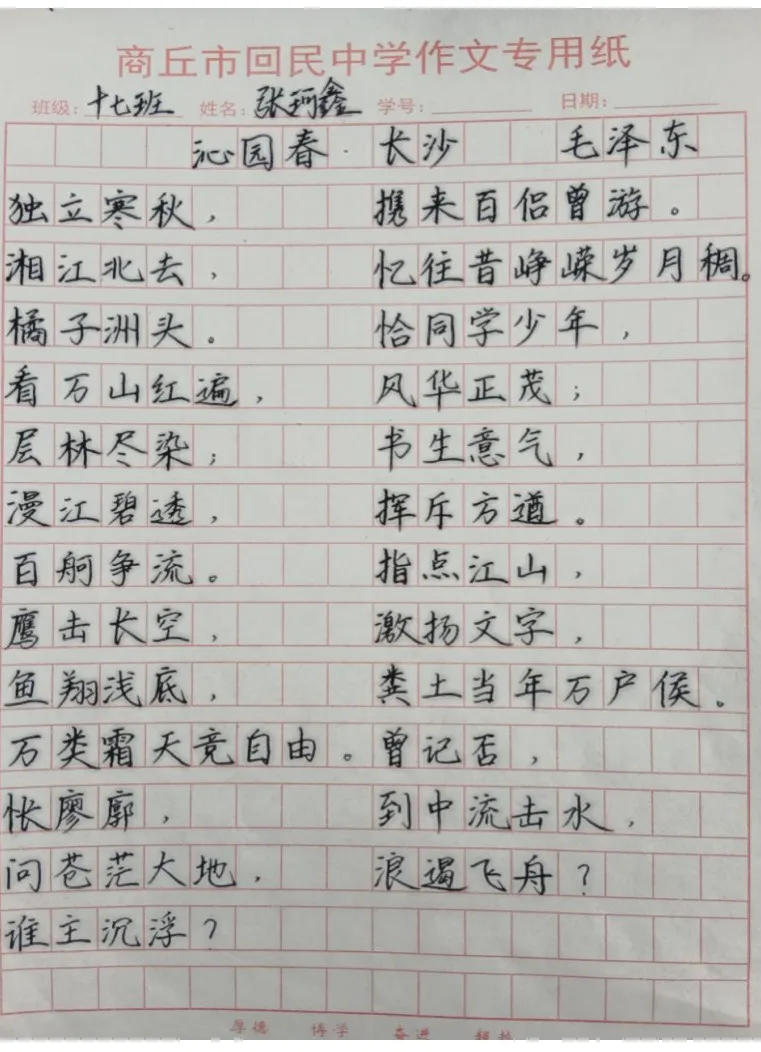 商丘市回民中学作文专用纸
班级：十七班 姓名：张珂鑫 学号： 日期：
沁园春·长沙 毛泽东
独立寒秋，
湘江北去，
橘子洲头。
看万山红遍，
层林尽染；
漫江碧透，
百舸争流。
鹰击长空，
鱼翔浅底，
万类霜天竞自由。
怅廖廓，
问苍茫大地，
谁主沉浮？
携来百侣曾游。
忆往昔峥嵘岁月稠。
恰同学少年，
风华正茂；
书生意气，
挥斥方遒。
指点江山，
激扬文字，
粪土当年万户侯。
曾记否，
到中流击水，
浪遏飞舟？
厚德 博学 奋进